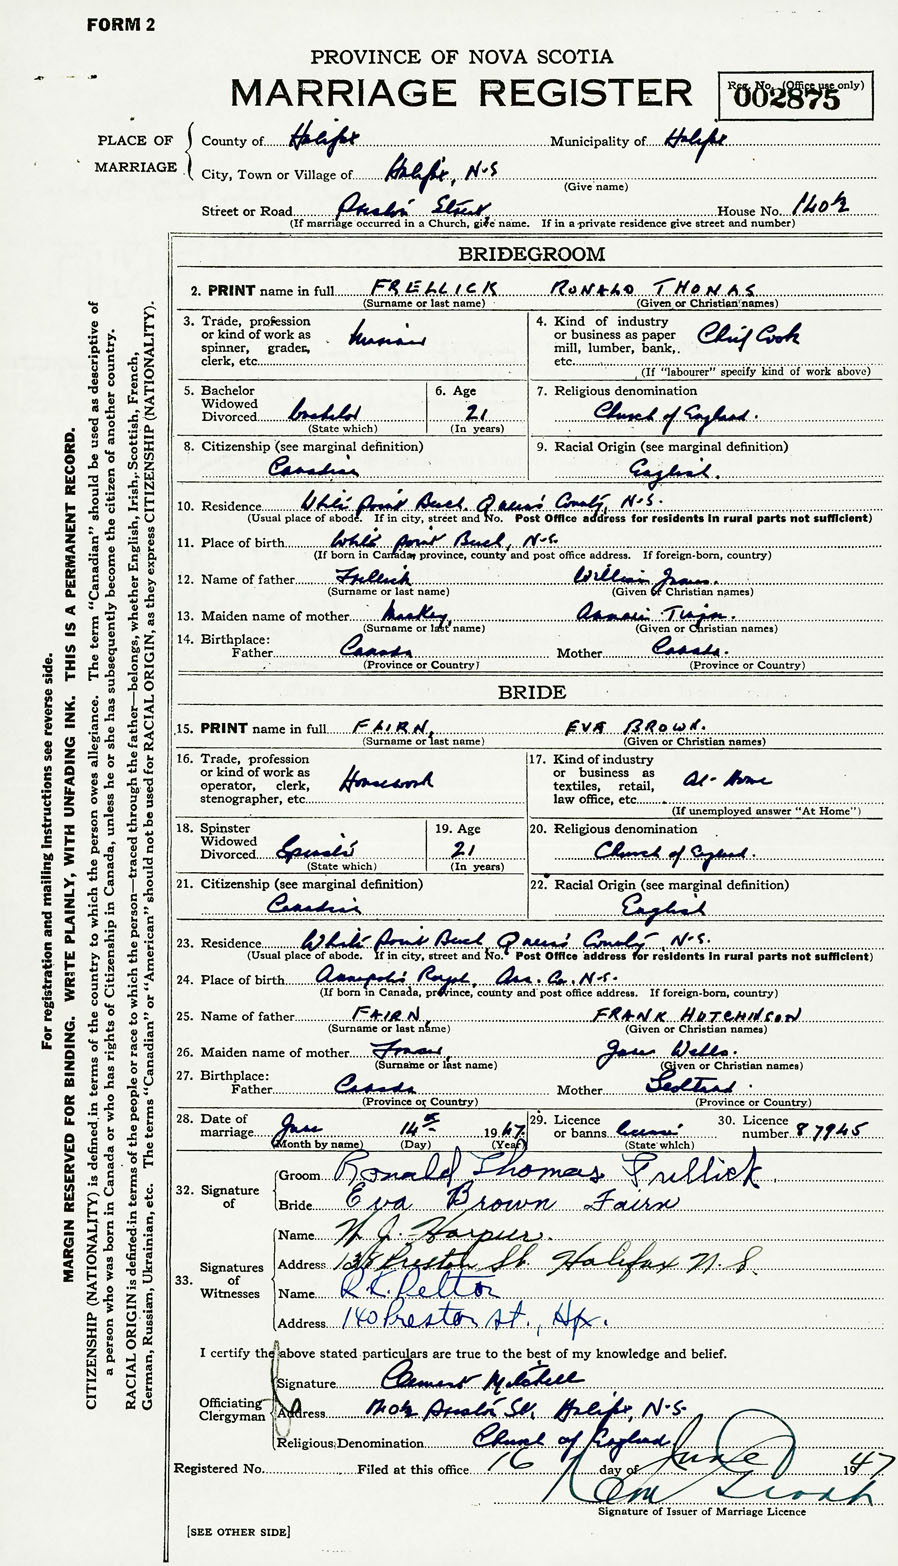 FORM 2
PROVINCE OF NOVA SCOTIA
MARRIAGE REGISTER
Reg. No. (Office use only)
002875
PLACE OF MARRIAGE
County of Halifax Municipality of Halifax
City, Town or Village of Halifax, N.S
(Give name)
Street or Road Preston Street, House No. 140½
(If marriage occurred in a Church, give name. If in a private residence give street and number)
BRIDEGROOM
2. PRINT name in full FRELLICK RONALD THOMAS
(Surname or last name) (Given or Christian names)
3. Trade, profession or kind of work as spinner, grader, clerk, etc.
4. Kind of industry or business as paper mill, lumber, bank, etc. Chief Cook
(If "labourer" specify kind of work above)
5. Bachelor Widowed Divorced bachelor
(State which)
6. Age 21
(In years)
7. Religious denomination
Church of England.
8. Citizenship (see marginal definition)
Canadian
9. Racial Origin (see marginal definition)
English.
10. Residence White Point Beach, Queen's County, N.S.
(Usual place of abode. If in city, street and No. Post Office address for residents in rural parts not sufficient)
11. Place of birth White Point Beach, N.S.
(If born in Canada, province, county and post office address. If foreign-born, country)
12. Name of father Frellick William James.
(Surname or last name) (Given or Christian names)
13. Maiden name of mother
(Surname or last name) (Given or Christian names)
14. Birthplace:
Father Canada Mother Canada.
(Province or Country) (Province or Country)
BRIDE
15. PRINT name in full FAIRN, EVA BROWN.
(Surname or last name) (Given or Christian names)
16. Trade, profession or kind of work as operator, clerk, stenographer, etc. Housework
17. Kind of industry or business as textiles, retail, law office, etc. At- Home
(If unemployed answer "At Home")
18. Spinster Widowed Divorced Spinster
(State which)
19. Age 21
(In years)
20. Religious denomination
Church of England.
21. Citizenship (see marginal definition)
Canadian
22. Racial Origin (see marginal definition)
English
23. Residence White Point Beach, Queen's County, N.S.
(Usual place of abode. If in city, street and No. Post Office address for residents in rural parts not sufficient)
24. Place of birth Annapolis Royal, Ann. Co. N.S.
(If born in Canada, province, county and post office address. If foreign-born, country)
25. Name of father FAIRN, FRANK HUTCHINSON
(Surname or last name) (Given or Christian names)
26. Maiden name of mother Wells.
(Surname or last name) (Given or Christian names)
27. Birthplace:
Father Canada Mother Scotland.
(Province or Country) (Province or Country)
28. Date of marriage June 14th 1947.
(Month by name) (Day) (Year)
29. Licence or banns license
(State which)
30. Licence number 87945
32. Signature of
Groom Ronald Thomas Frellick.
Bride Eva Brown Fairn
33. Signatures of Witnesses
Name W. J. Harpur.
Address 138 Preston St. Halifax N.S.
Name R.K. Pelton
Address 140 Preston st., Hfx.
I certify the above stated particulars are true to the best of my knowledge and belief.
Officiating Clergyman
Signature Clement Mitchell
Address 140½ Preston St. Halifax, N.S
Religious Denomination Church of England
Registered No. Filed at this office 16 day of June 1947
Signature of Issuer of Marriage Licence
[SEE OTHER SIDE]
For registration and mailing instructions see reverse side.
MARGIN RESERVED FOR BINDING. WRITE PLAINLY, WITH UNFADING INK. THIS IS A PERMANENT RECORD.
CITIZENSHIP (NATIONALITY) is defined in terms of the country to which the person owes allegiance. The term "Canadian" should be used as descriptive of
a person who was born in Canada or who has rights of Citizenship in Canada, unless he or she has subsequently become the citizen of another country.
RACIAL ORIGIN is defined in terms of the people or race to which the person—traced through the father—belongs, whether English, Irish, Scottish, French,
German, Russian, Ukrainian, etc. The terms "Canadian" or "American" should not be used for RACIAL ORIGIN, as they express CITIZENSHIP (NATIONALITY).